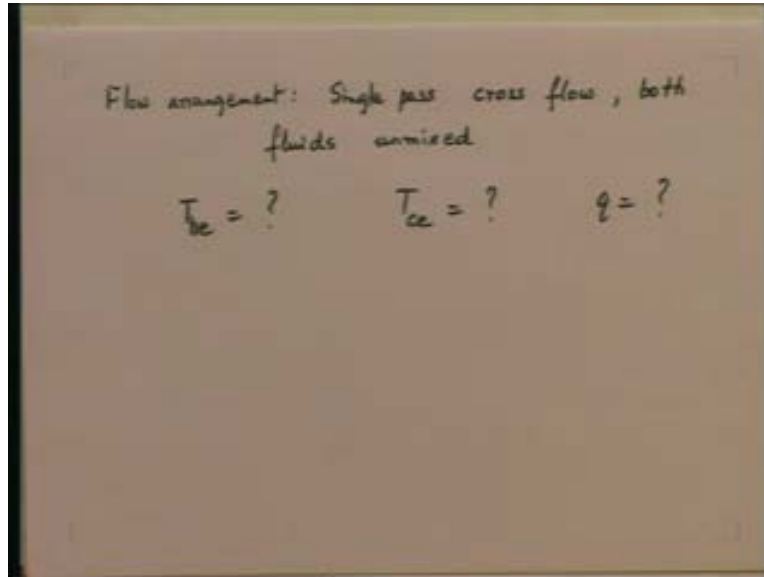 Flow arrangement: Single pass cross flow, both
fluids unmixed
The = ? Tce = ? q = ?